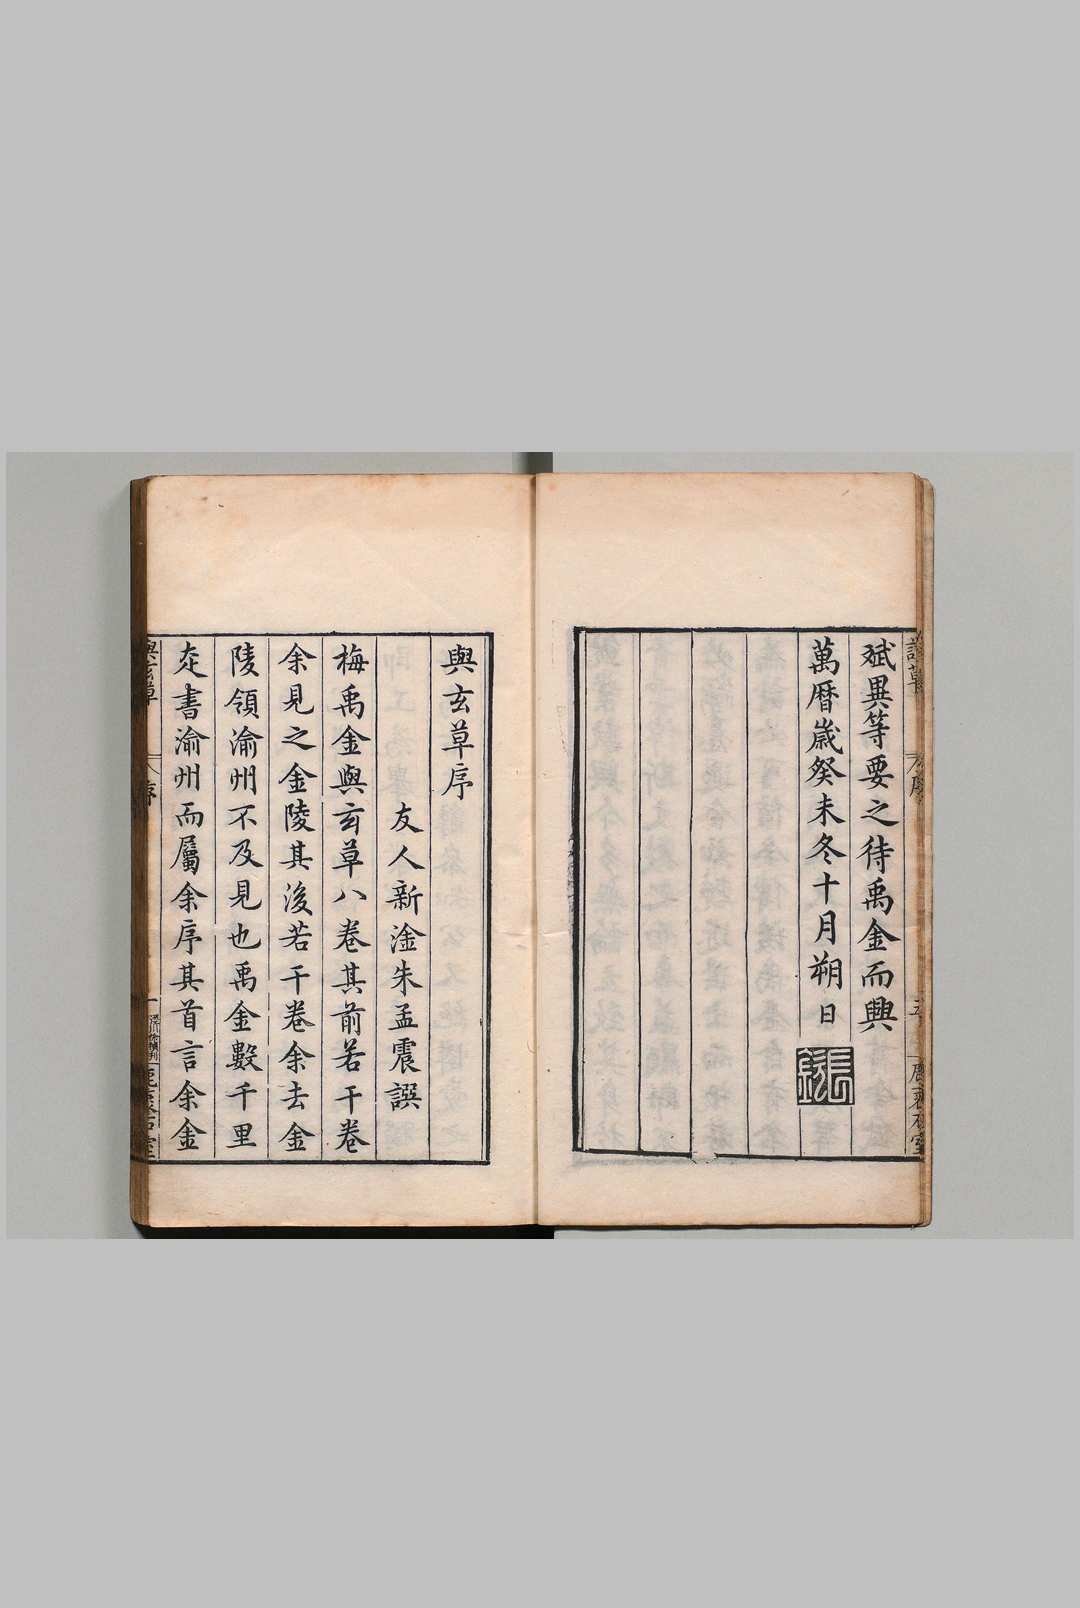 斌異等要之待禹金而興
萬曆歲癸未冬十月朔日
與玄草序
友人新淦朱孟震譔
梅禹金與玄草八卷其前若干卷
余見之金陵其後若干卷余去金
陵領渝州不及見也禹金數千里
走書渝州而屬余序其首言余金
與玄草
序
鹿裘石室